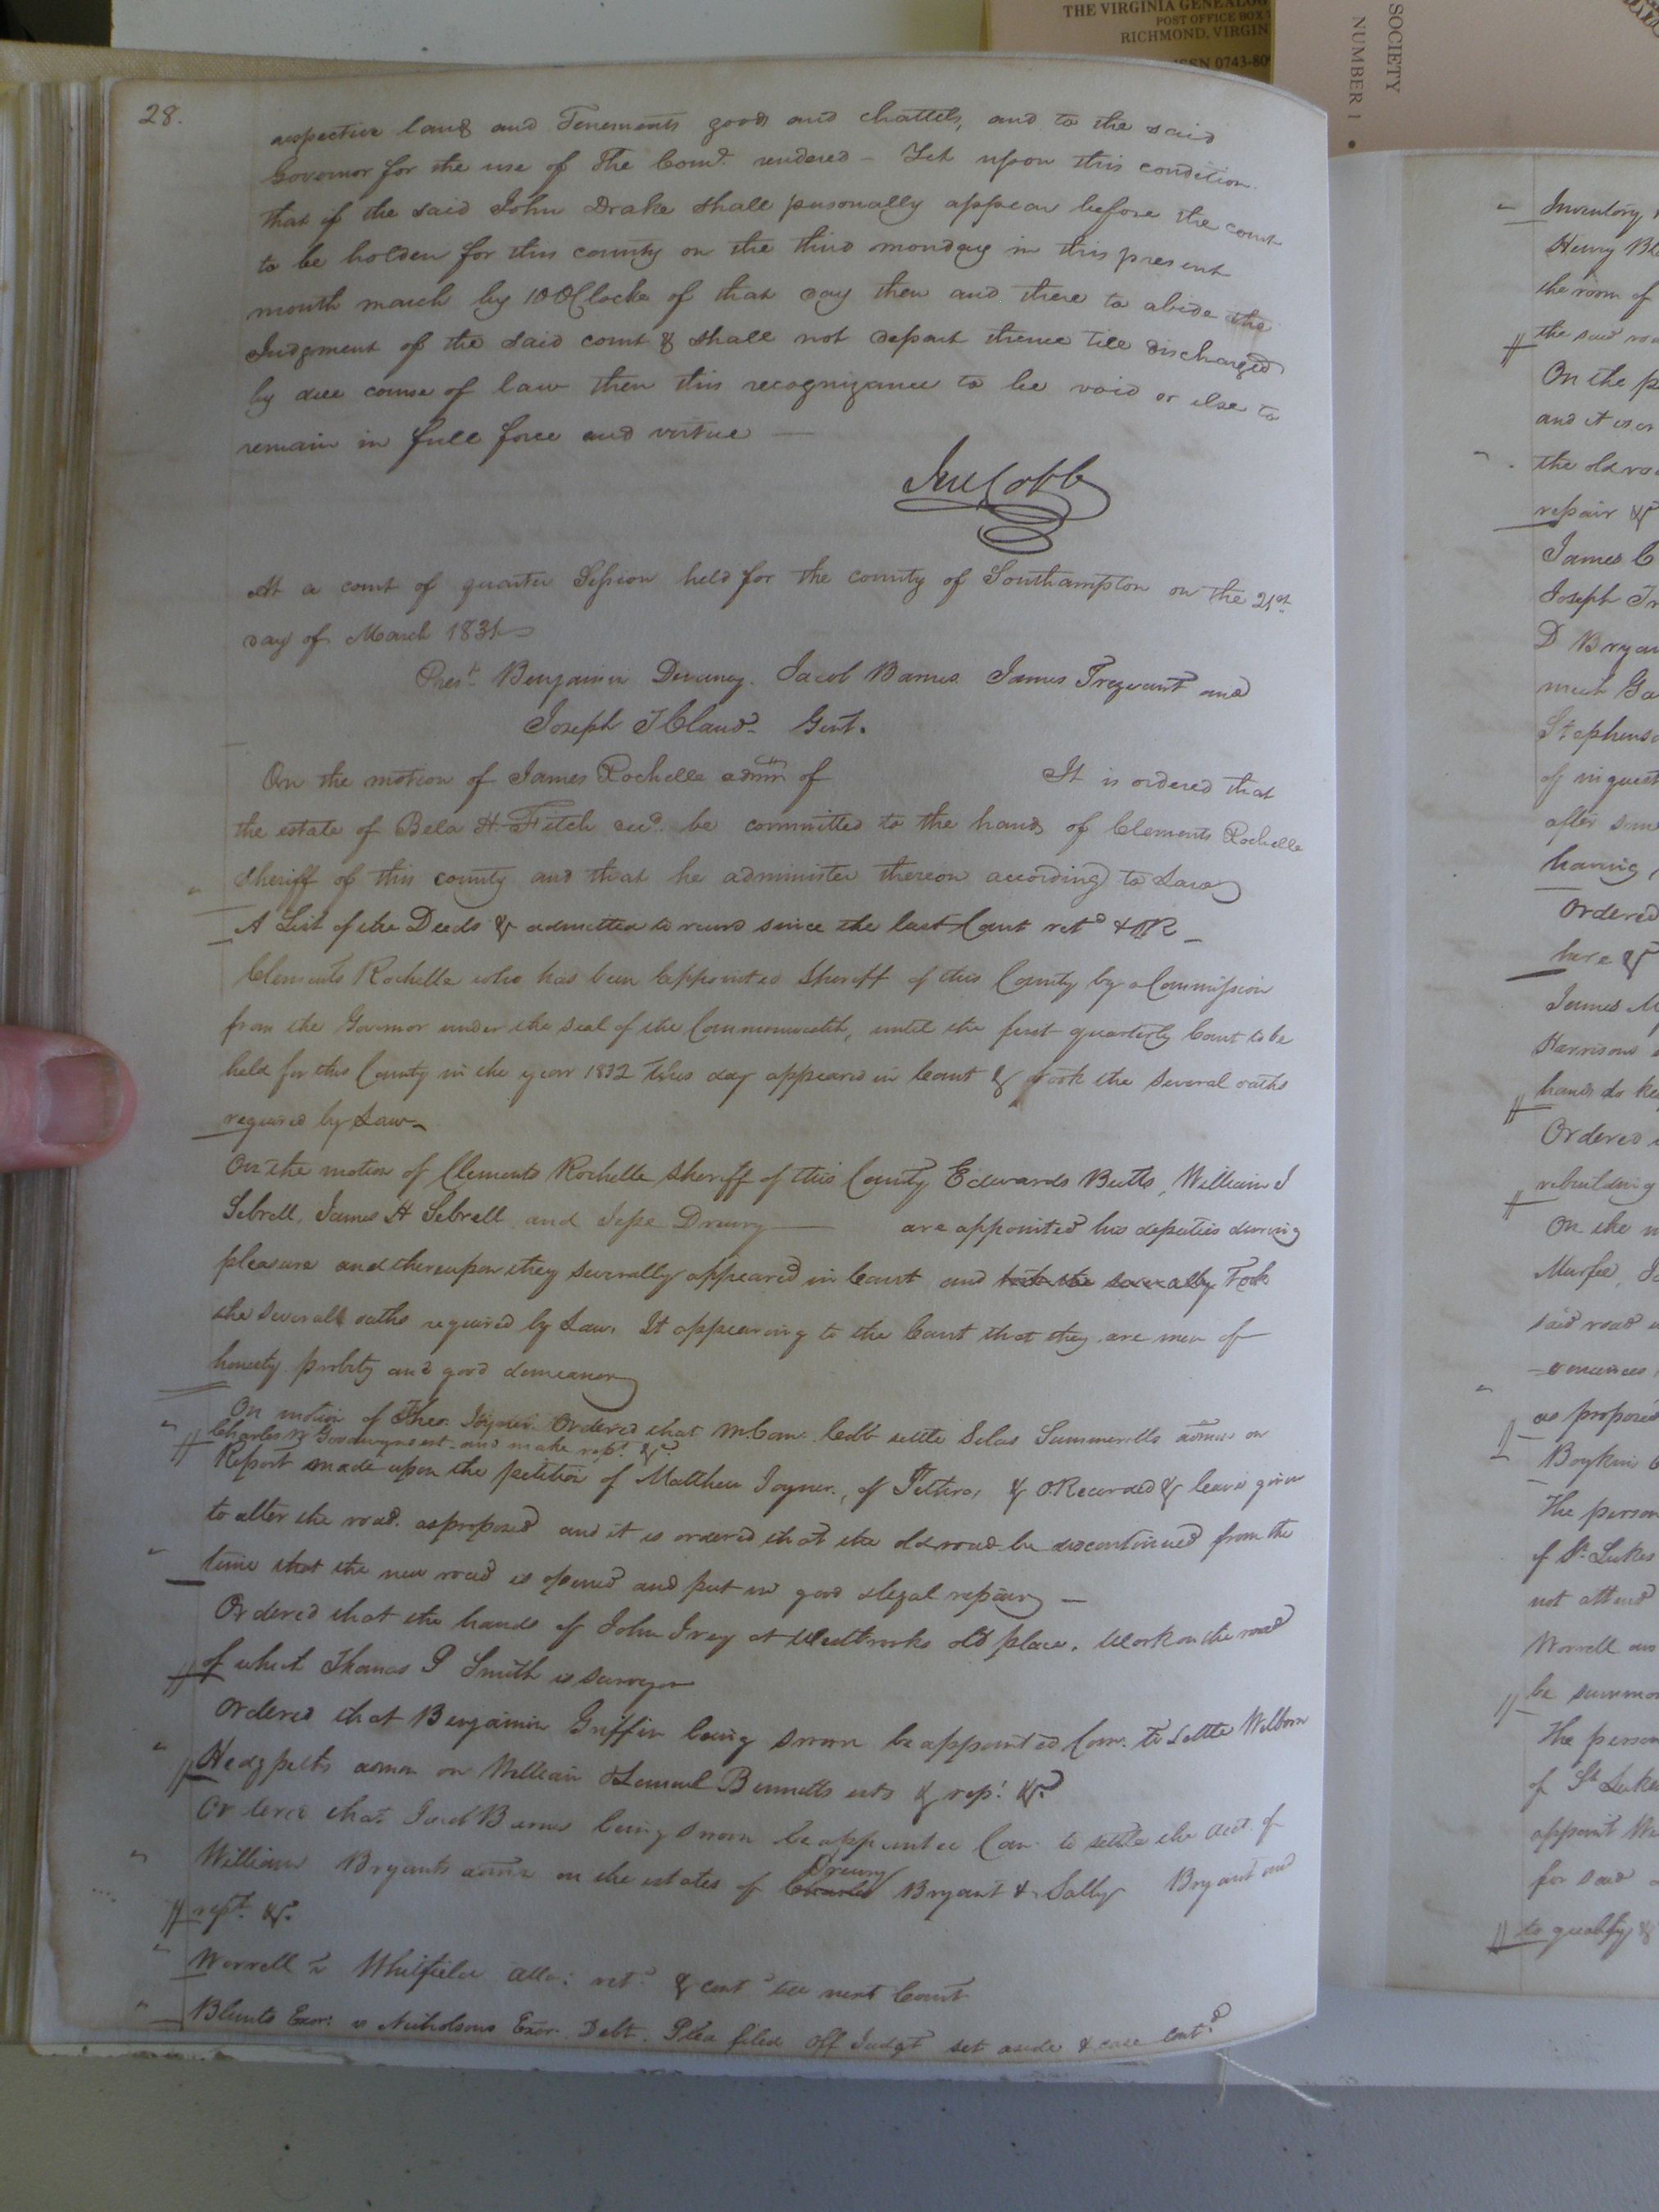 THE VIRGINIA GENEALOG
POST OFFICE BOX
RICHMOND, VIRGIN
ISSN 0743-80
SOCIETY
NUMBER 1
28.
respective lands and Tenements goods and chattels, and to the said
Governor for the use of the Comd. rendered - Yet upon this condition
that if the said John Drake shall personally appear before the court
to be holden for this county on the third monday in this present
month march by 10 OClocke of that day then and there to abide the
Judgment of the said court & shall not depart thence till discharged
by due course of law then this recognizance to be void or else to
remain in full force and virtue —
At a court of quarter Session held for the county of Southampton on the 21st
day of March 1831
Prest. Benjamin Devaney. Jacob Barnes James Trezvant and
Joseph T Claud. Gent.
On the motion of James Rochelle admr of It is ordered that
the estate of Bela H Fitch decd. be committed to the hands of Clements Rochelle
Sheriff of this county and that he administer thereon according to Law
A List of the Deeds & admitted to record since the last Court retd & OR
Clements Rochelle who has been appointed Sheriff of this County by a Commission
from the Governor under the seal of the Commonwealth, until the first quarterly Court to be
held for this County in the year 1832 this day appeared in Court & took the several oaths
required by Law
On the motion of Clements Rochelle Sheriff of this County Edwards Butts, William J
Sebrell, James H Sebrell and Jesse Drewry — are appointed his deputies during
pleasure and thereupon they severally appeared in Court and took the severally Took
the several oaths required by Law. It appearing to the Court that they are men of
honesty probity and good demeanor
On motion of Theo. Joyner Ordered that settle Silas Summerells admon on
Charles Goodwyns est. and make rept. &c
Report made upon the petition of Matthew Joyner, of Pethro, & O.Recorded & leave given
to alter the road as proposed and it is ordered that the old road be discontinued from the
time that the new road is opened and put in good & legal repair —
Ordered that the hands of John Ivey at Westbrooks old place, Work on the road
of which Thomas P Smith is Surveyor
Ordered that Benjamin Griffin being sworn be appointed Com. to settle Wilborn
Hedgpeths admon on William & Lemuel Bennetts ests & rept. &c
Ordered that Jacob Barnes being sworn be appointed Com. to settle the acct. of
William Bryants admn on the estates of Drewry Bryant & Sally Bryant and
rept. &c.
Worrell vs Whitfield retd & contd till next Court
Blunts Exor: vs Nicholsons Exor. Debt. Plea filed Off Judgt set aside & case Contd
Inventory
Henry
the room of
the said
On the
and it is or
the old
repair &
James
Joseph
D Bryan
meet
Stephens
of inquest
after
having
Ordered
here &
James
Harrisons
hands to
Ordered
rebuilding
On the
Murfee,
said road
as proposed
Boykin
The person
of St. Lukes
not attend
Worrell
be
The person
of St Lukes
appoint
for said
to qualify &